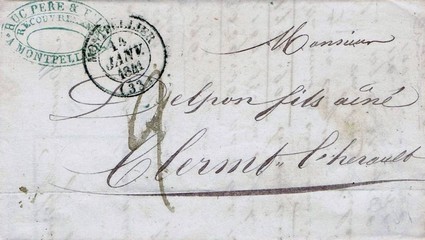 BRUC PERE & F
RECOUVREM
A MONTPELL
MONTPELLIER
14
JANV.
1841
(33)
Monsieur
Delpon fils ainé
Clermt= l'herault